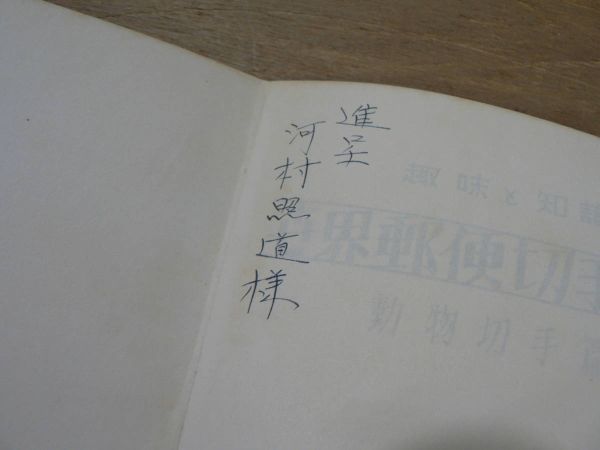 進呈
河村照道様
趣味と知識
世界郵便切手
動物切手